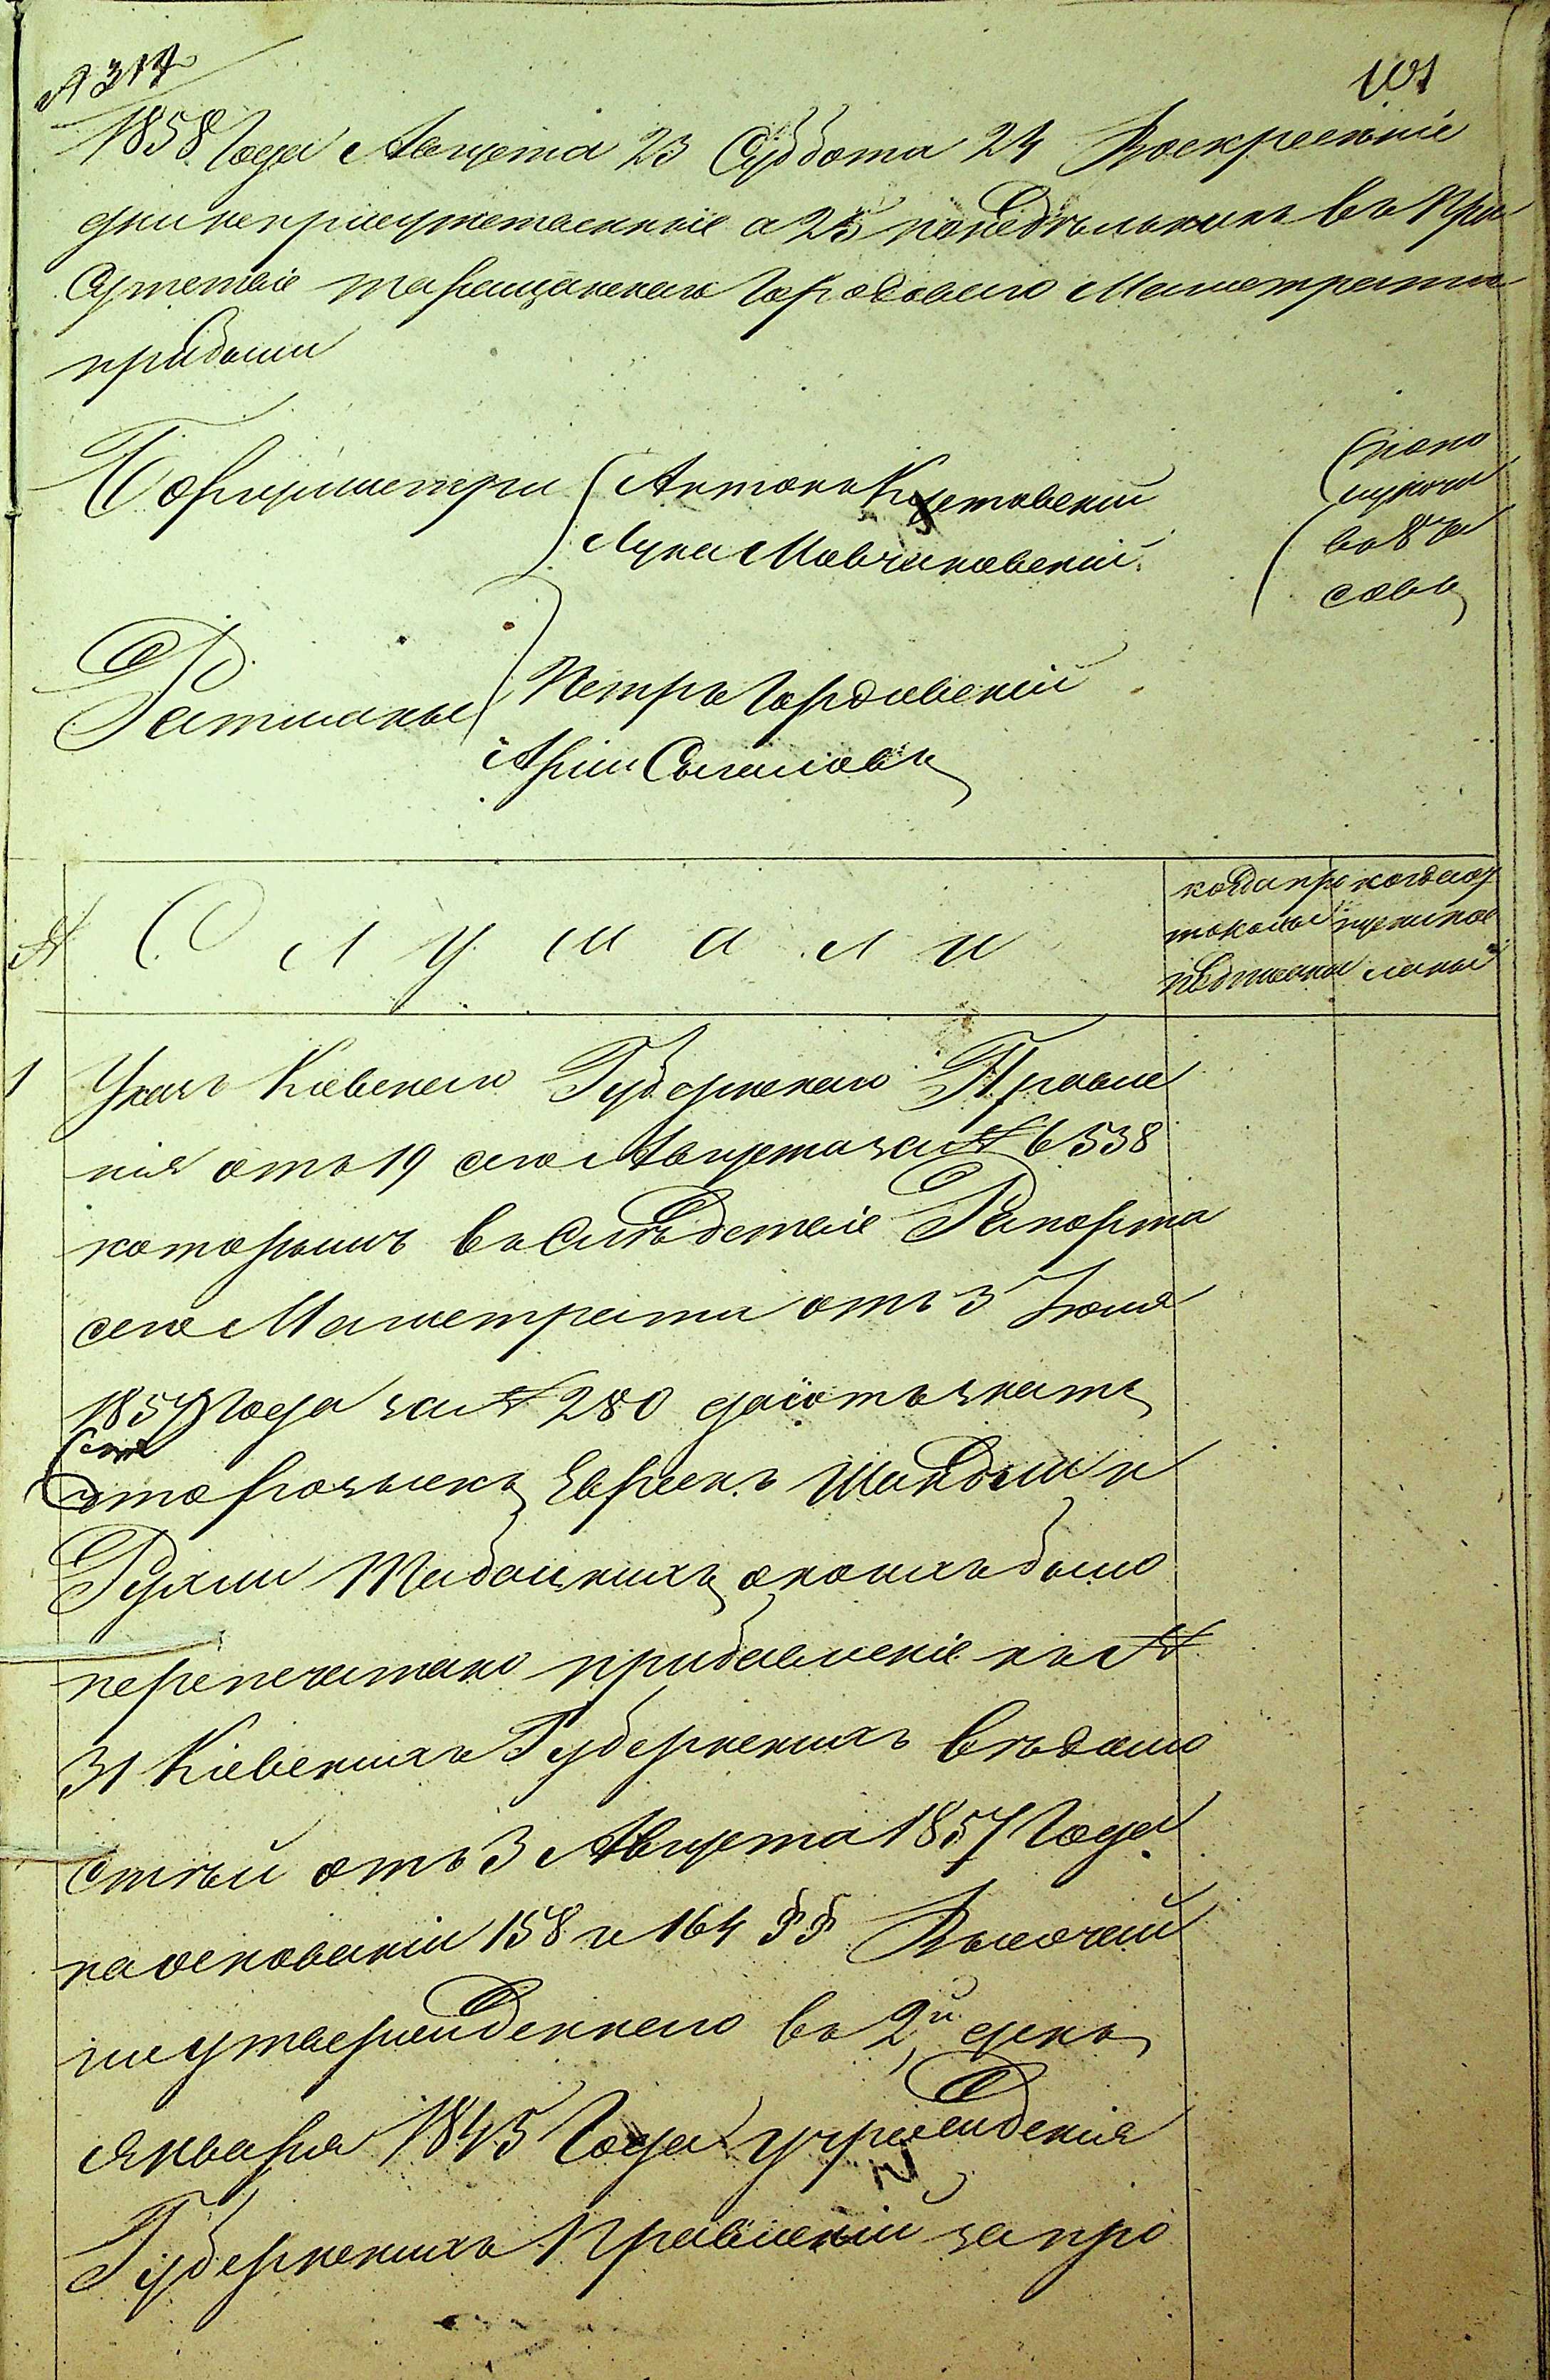 № 317
101
1858 Года Августа 23 Суббота 24 Воскресеніе
дни неприсутственные а 25 понедѣльникъ въ При
сутствіе таращанскаго Городоваго Магистрата
прибыли
Бургомистры Антонъ
Лука Мовчановскій
по по
лудни
въ 8 ча
совъ
Ратманы Петръ Гордовскій
№ Слушали
когда про
токолы
подписаны
когда
1 Указъ Кіевскаго Губернскаго Правле
нія отъ 19 сего Августа за № 6538
которымъ въ слѣдствіе Рапорта
сего Магистрата отъ 3 Іюля
1857 Года за № 280 даётъ знать
что розыскъ Евреекъ и
Рухли о коихъ было
перепечатано прибавленіе къ №
31 Кіевскихъ Губернскихъ вѣдомо
стей отъ 3 Августа 1857 Года
на основаніи 158 и 164 §§ Высочай
ше утвержденнаго въ 2й день
января 1845 Года учрежденія
Губернскихъ Правленій за про